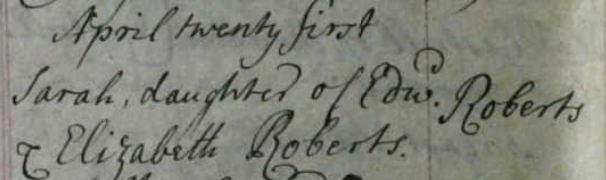 April twenty first
Sarah, daughter of Edwd. Roberts
& Elizabeth Roberts.